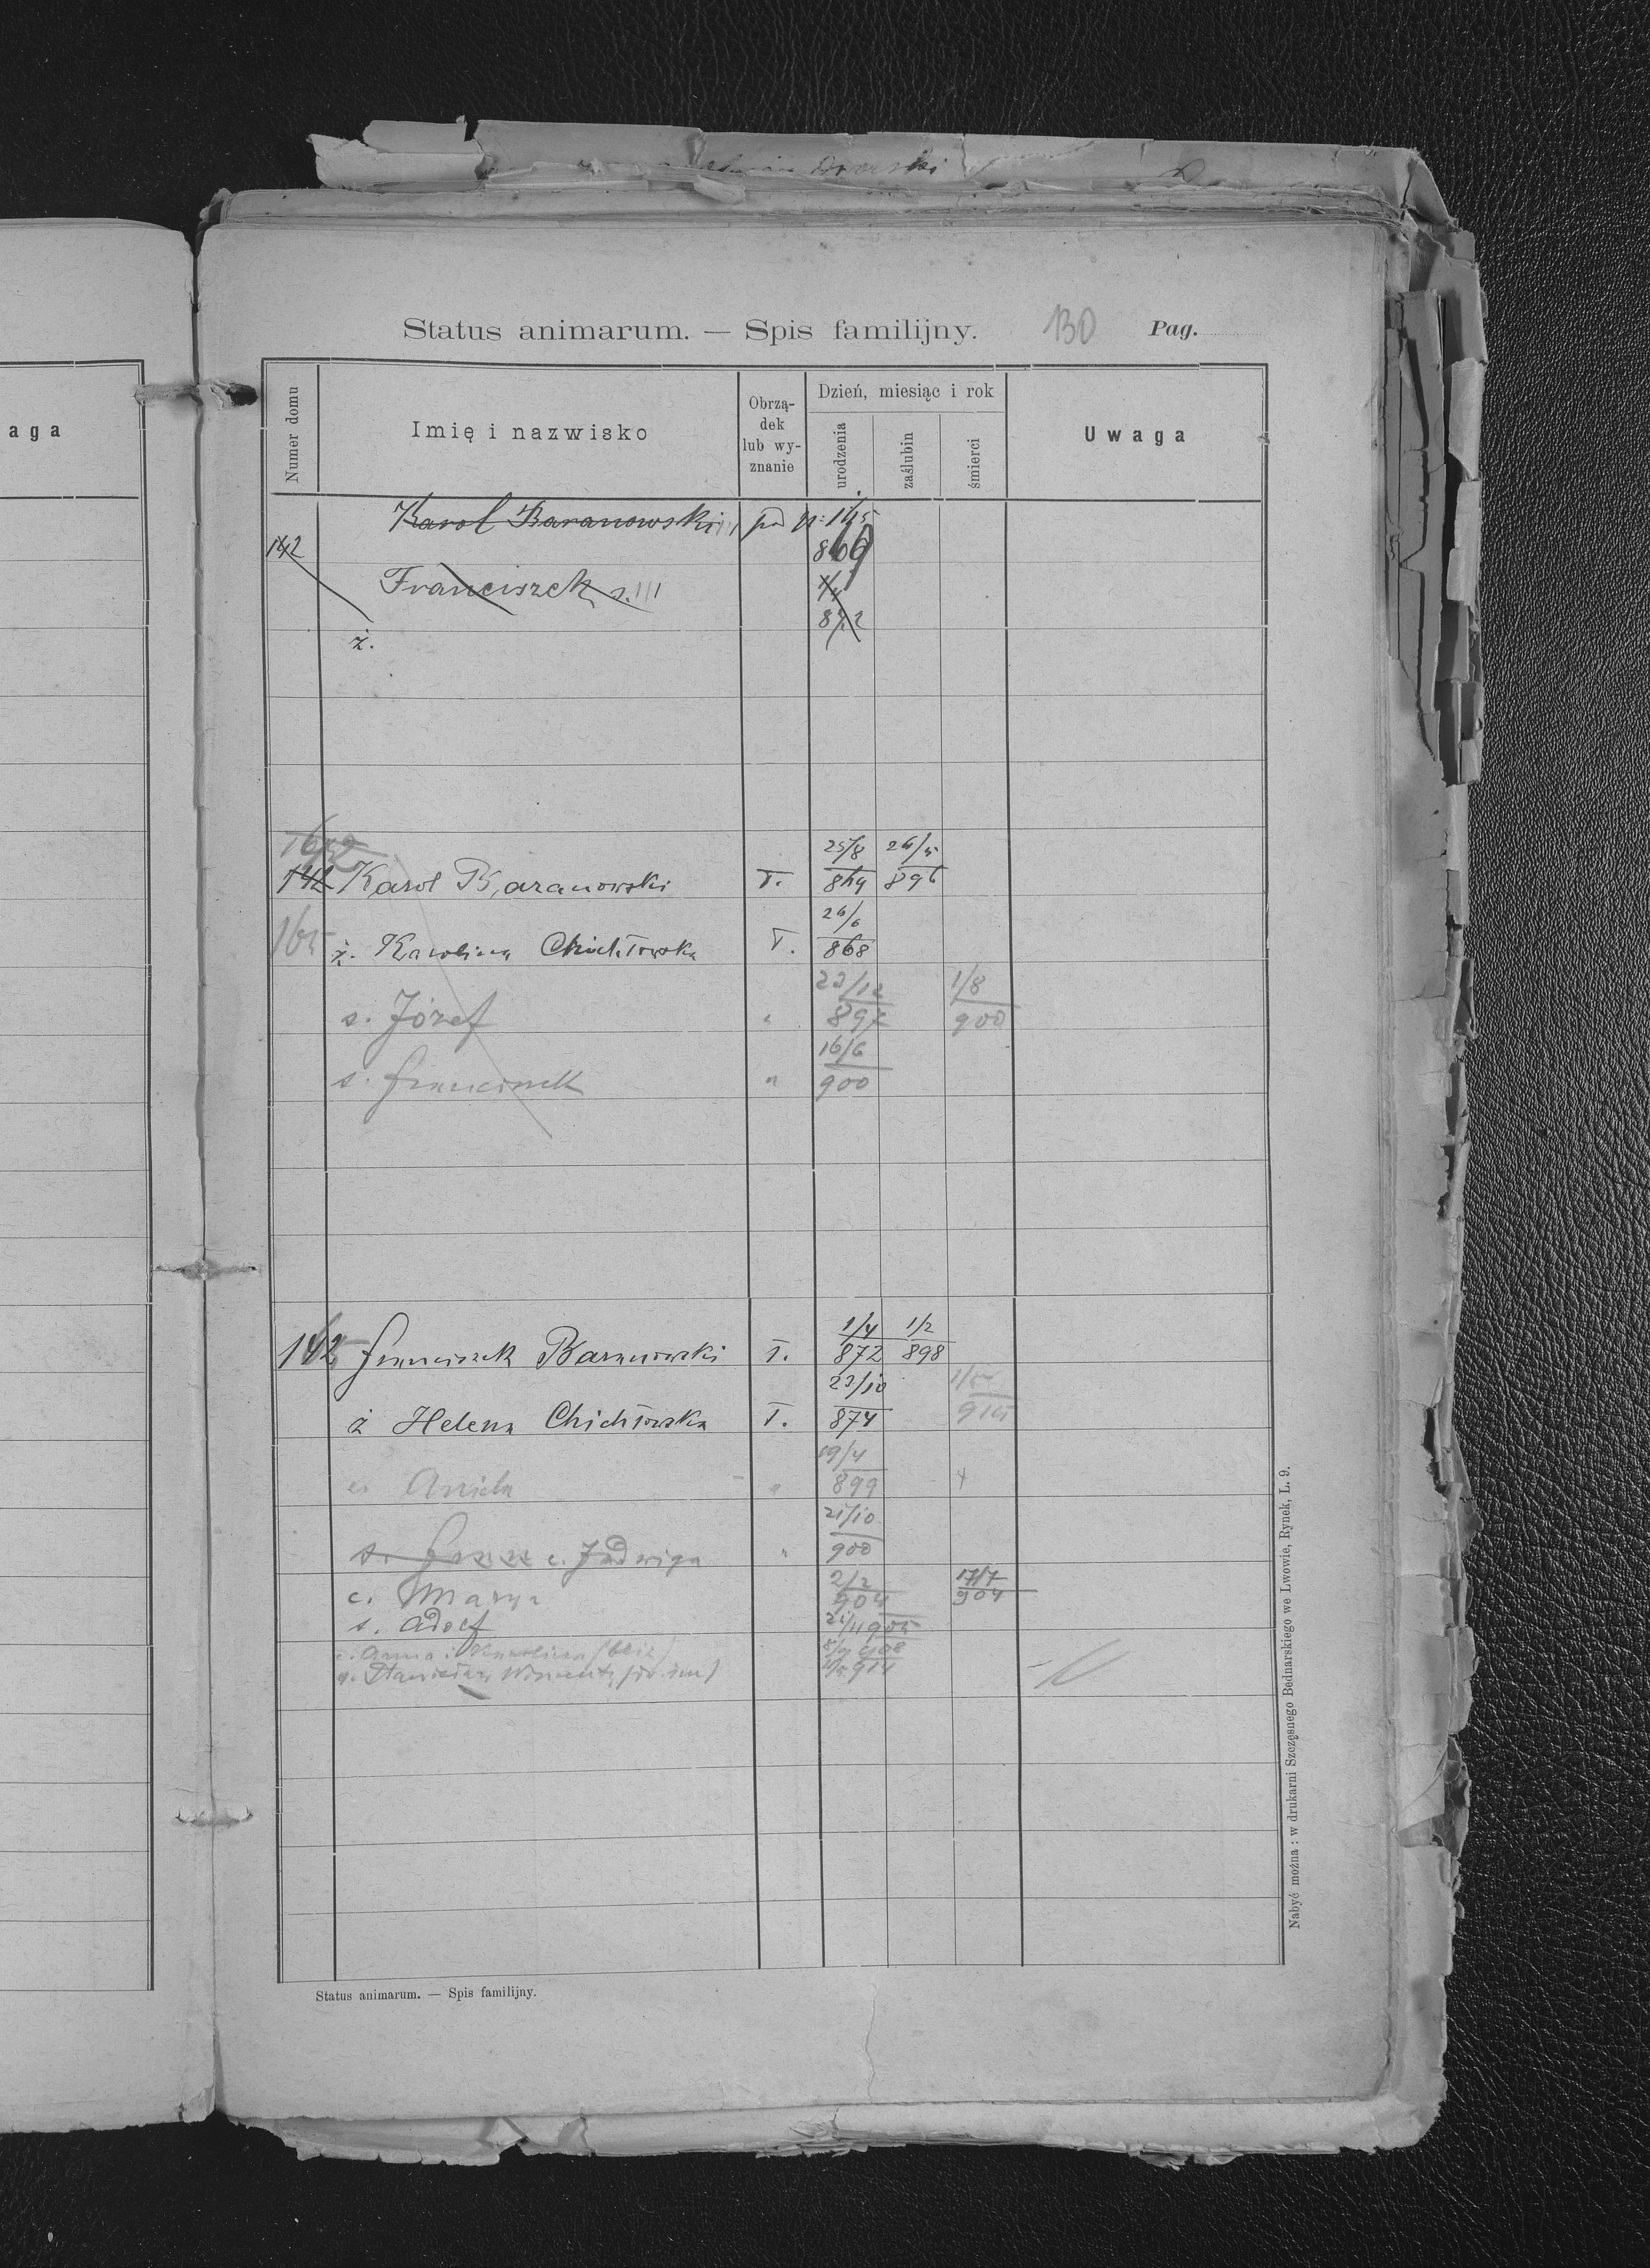 Status animarum. — Spis familijny. 130 Pag.
aga
Numer domu
Imię i nazwisko
Obrzą-
dek
lub wy-
znanie
Dzień, miesiąc i rok
urodzenia
zaślubin
śmierci
Uwaga
Karol Baranowski
142 869
Franciszek s. III
872
ż.
25/8 26/5
142 Karol Baranowski T. 869 896
26/6
165 ż. Karolina Chichłowska T. 868
23/12 1/8
s. Józef " 897 900
16/6
s. Franciszek " 900
1/4 1/2
142 Franciszek Baranowski T. 872 898
23/10 1/5
ż Helena Chichłowska T. 874
19/4
c. Aniela " 899 +
21/10
s. c. Jadwiga " 900
2/2 17/7
c. Marya 904 904
s. Adolf 905
c. Anna i Karolina (bliź) 908
s. Stanisław, Wincenty 914
Nabyć można : w drukarni Szczęsnego Bednarskiego we Lwowie, Rynek, L. 9.
Status animarum. — Spis familijny.